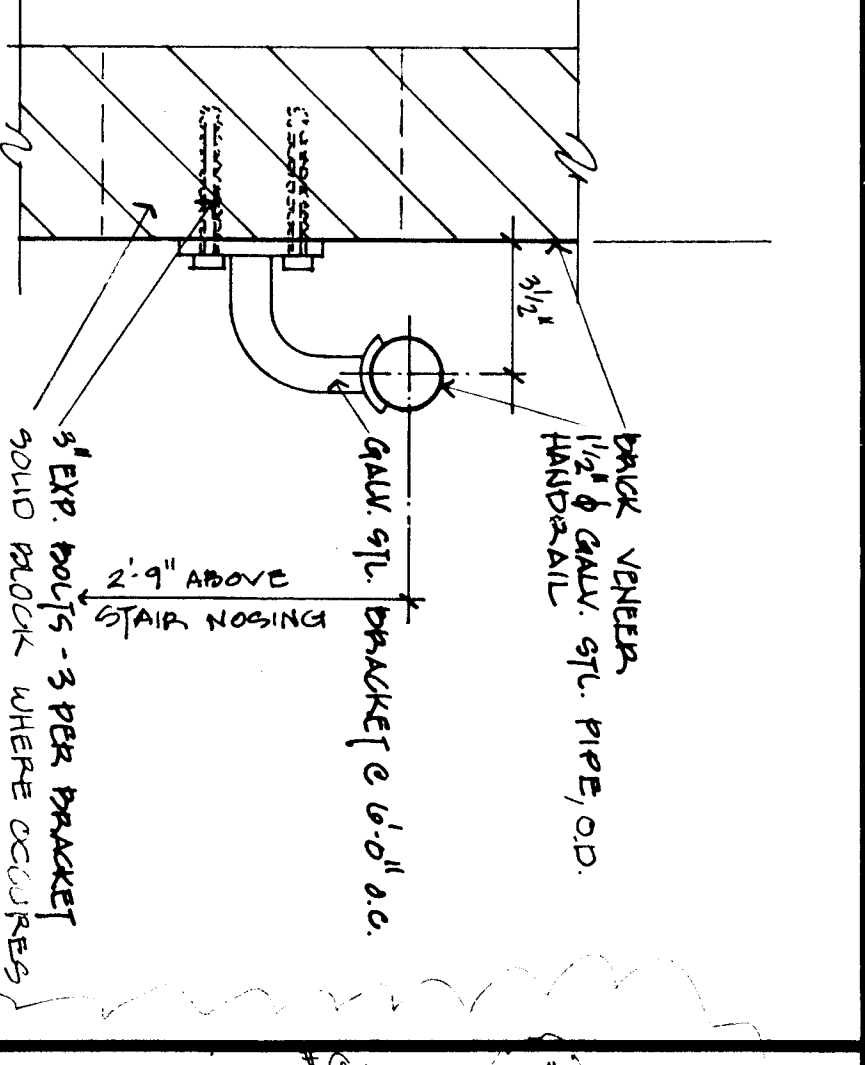 BRICK VENEER
1 1/2" φ GALV. STL. PIPE, O.D.
HANDRAIL
3 1/2"
GALV. STL. BRACKET @ 6'-0" O.C.
2'-9" ABOVE
STAIR NOSING
3" EXP. BOLTS - 3 PER BRACKET
SOLID BLOCK WHERE OCCURES